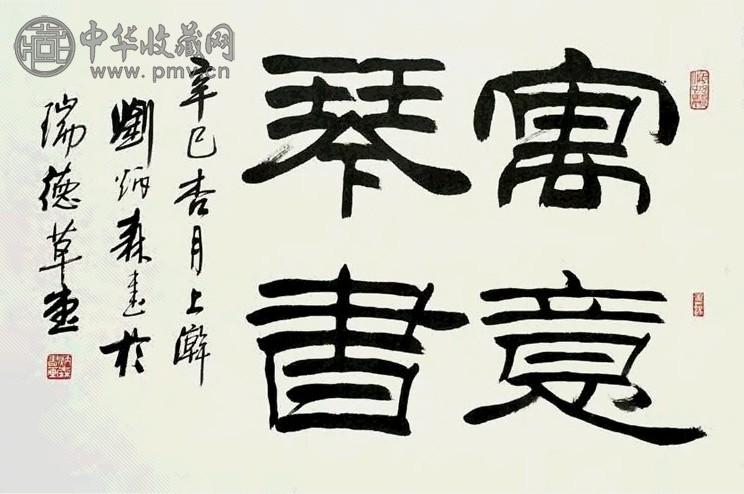 寓意
琴書
辛巳杏月上澣
劉炳森書於
瑞德草堂
中华收藏网
www.pmv.cn